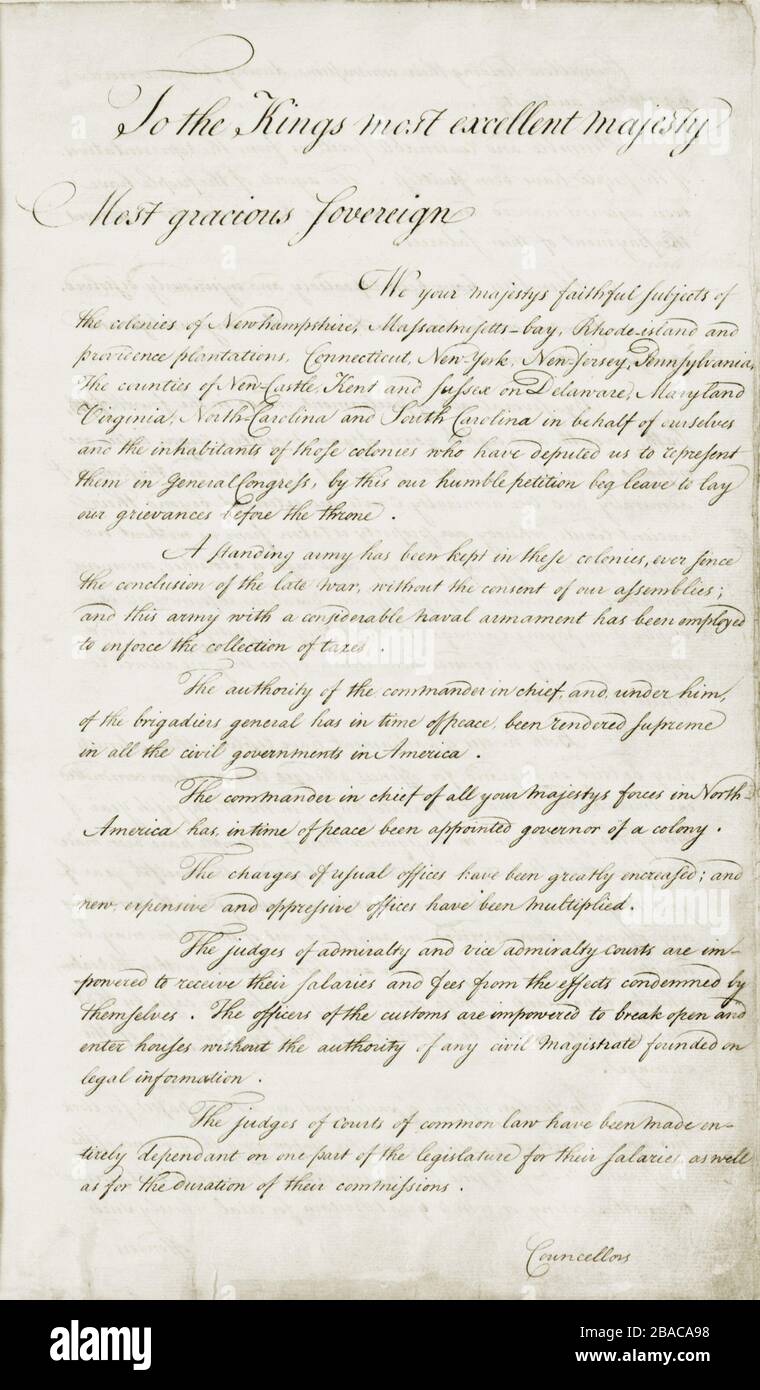 To the Kings most excellent majesty
Most gracious sovereign
We your majestys faithful subjects of
the colonies of Newhampshire, Massachusetts-bay, Rhode-island and
providence plantations, Connecticut, New-York, New-Jersey, Pennsylvania,
The counties of New-Castle, Kent and Sussex on Delaware, Maryland
Virginia, North-Carolina and South Carolina in behalf of ourselves
and the inhabitants of those colonies who have deputed us to represent
them in General Congress, by this our humble petition beg leave to lay
our grievances before the throne.
A standing army has been kept in these colonies, ever since
the conclusion of the late war, without the consent of our assemblies;
and this army with a considerable naval armament has been employed
to enforce the collection of taxes.
The authority of the commander in chief, and, under him,
of the brigadiers general has in time of peace, been rendered supreme
in all the civil governments in America.
The commander in chief of all your majestys forces in North-
America has, in time of peace been appointed governor of a colony.
The charges of usual offices have been greatly encreased; and
new, expensive and oppressive offices have been multiplied.
The judges of admiralty and vice admiralty courts are im-
-powered to receive their salaries and fees from the effects condemned by
themselves. The officers of the customs are impowered to break open and
enter houses without the authority of any civil magistrate founded on
legal information.
The judges of courts of common law have been made en-
tirely dependant on one part of the legislature for their salaries, as well
as for the duration of their commissions.
Councellors
alamy
Image ID: 2BACA98
www.alamy.com